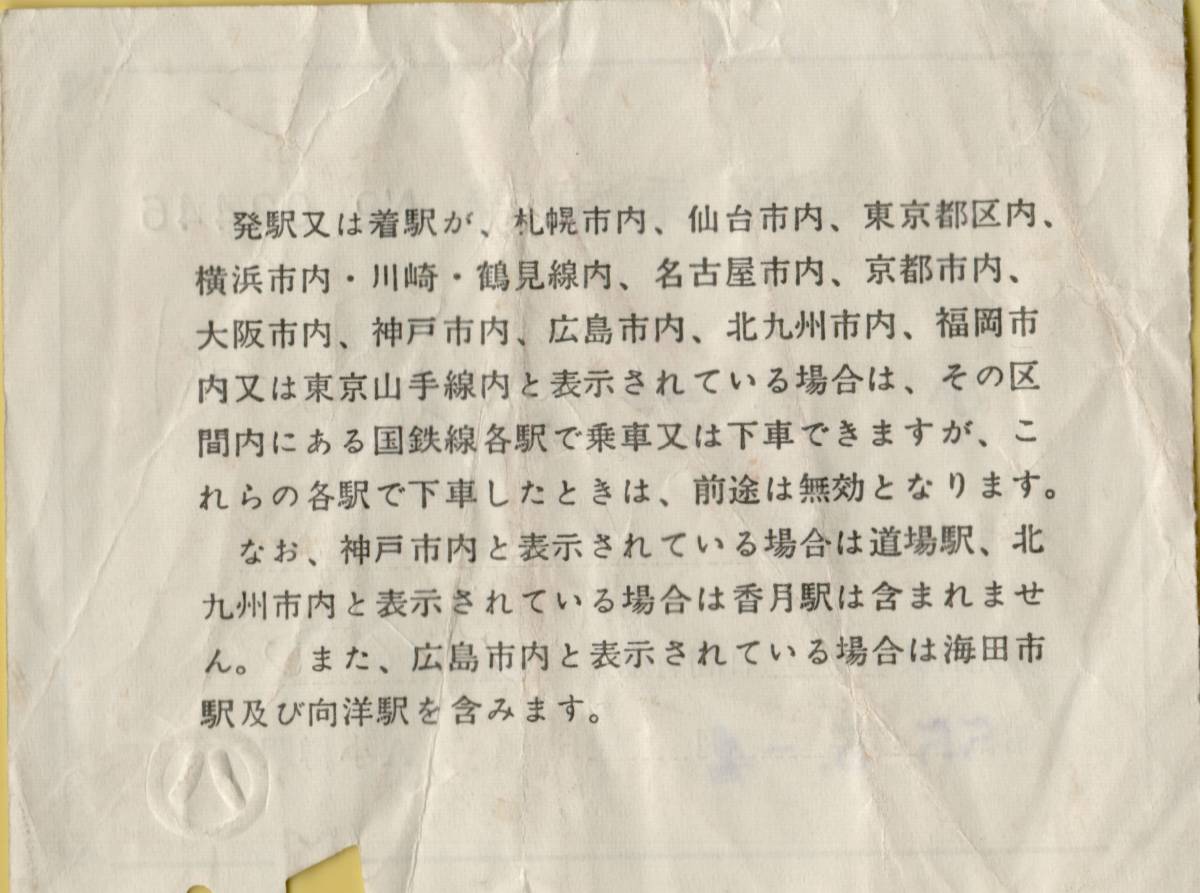 発駅又は着駅が、札幌市内、仙台市内、東京都区内、
横浜市内・川崎・鶴見線内、名古屋市内、京都市内、
大阪市内、神戸市内、広島市内、北九州市内、福岡市
内又は東京山手線内と表示されている場合は、その区
間内にある国鉄線各駅で乗車又は下車できますが、こ
れらの各駅で下車したときは、前途は無効となります。
なお、神戸市内と表示されている場合は道場駅、北
九州市内と表示されている場合は香月駅は含まれませ
ん。 また、広島市内と表示されている場合は海田市
駅及び向洋駅を含みます。
八